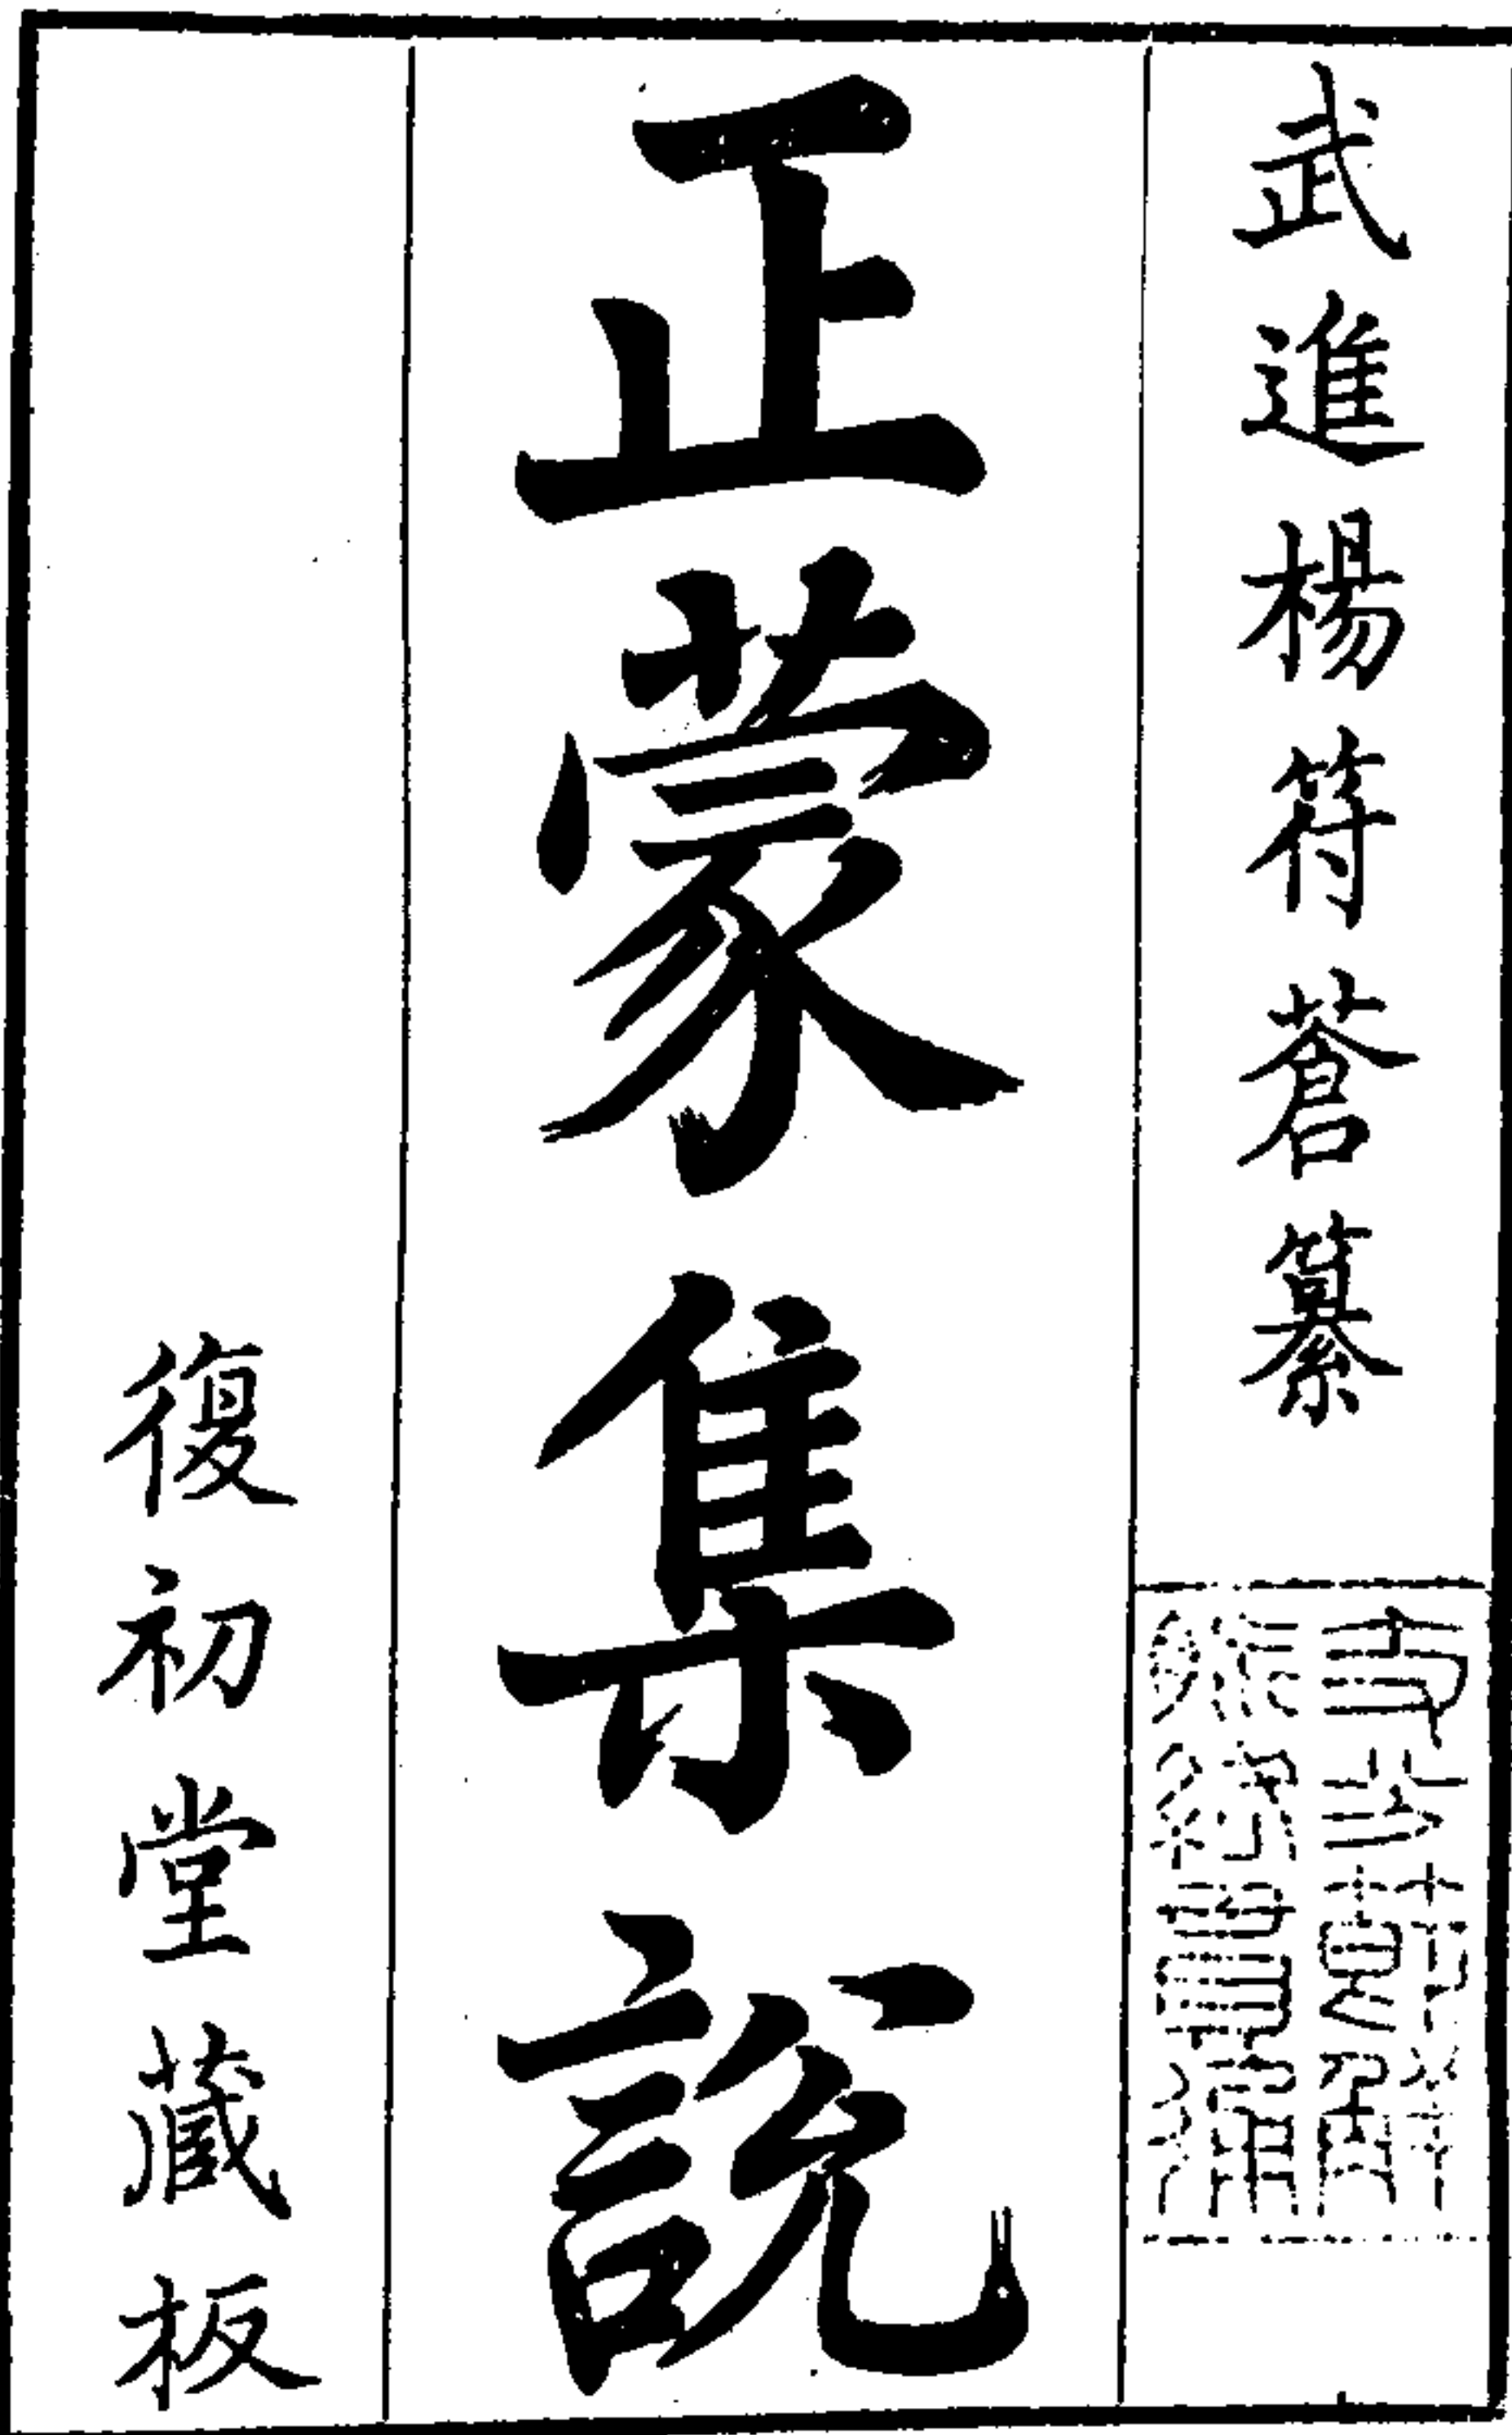 武進楊符蒼纂
正蒙集說
復初堂藏板